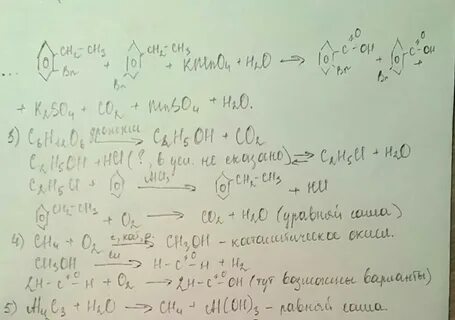 ... CH2-CH3 Br + CH2-CH3 Br + KMnO4 + H2O → C=O OH Br + C=O OH Br +
+ K2SO4 + CO2 + MnSO4 + H2O.
3) C6H12O6 → C2H5OH + CO2
C2H5OH + HCl (?, в усл. не сказано) ⇄ C2H5Cl + H2O
C2H5Cl + → CH2-CH3 + HCl
CH2-CH3 + O2 → CO2 + H2O (уравняй сама)
4) CH4 + O2 → CH3OH - каталитическое окисл.
CH3OH → H-C=O-H + H2
2H-C=O-H + O2 → 2H-C=O-OH (тут возможны варианты)
5) Al4C3 + H2O → CH4 + Al(OH)3 - равняй сама.